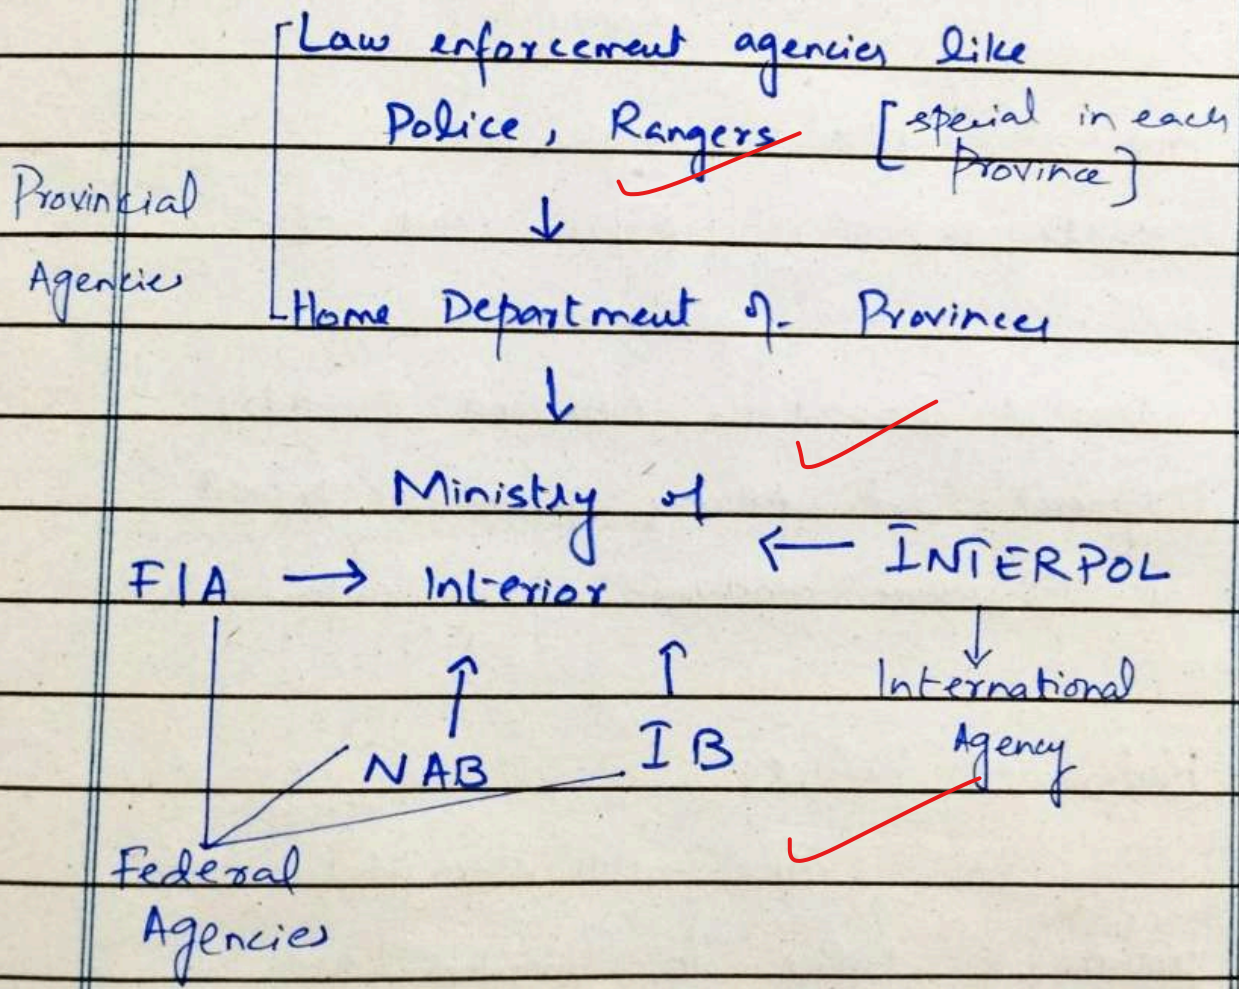 Law enforcement agencies like
Police, Rangers [special in each
Province]
Provincial
Agencies
↓
Home Department of Provinces
↓
Ministry of
FIA → Interior ← INTERPOL
↑ ↑ ↓
International
NAB IB Agency
Federal
Agencies